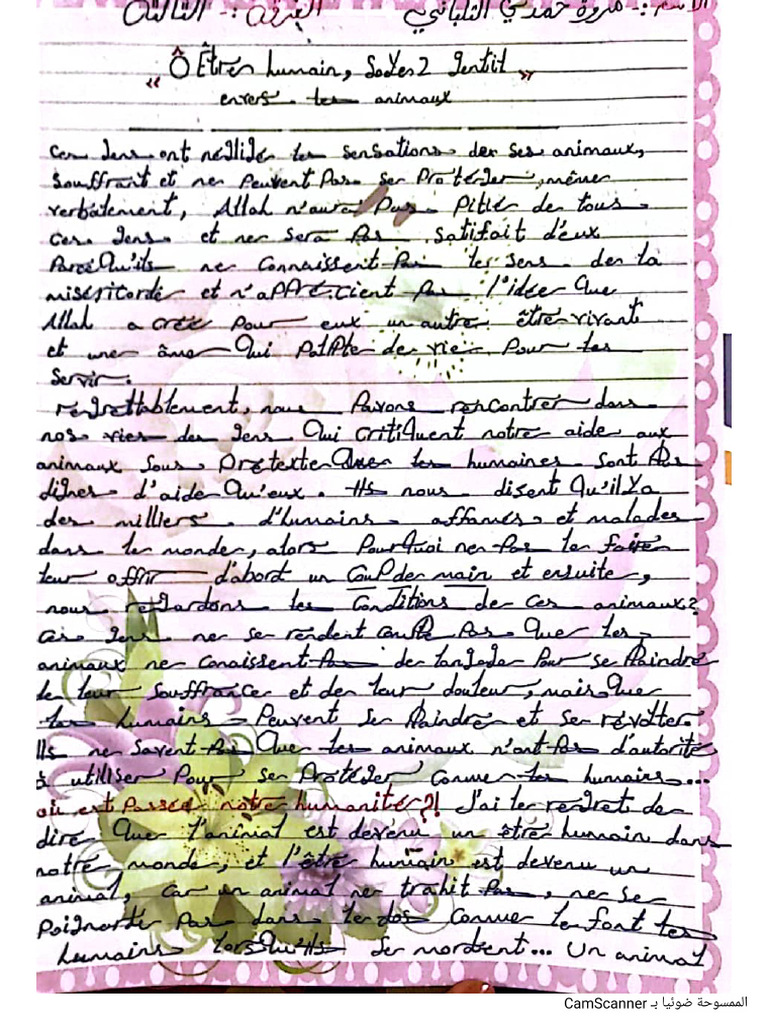 الاسم :- مروة حمدي التلباني الفرقة :- الثالثة
" Ô Êtres humain, Soyez gentil "
envers les animaux
Ces gens ont négligé les sensations de ses animaux,
souffrant et ne peuvent pas se protéger, même
verbalement, Allah n'aura pas pitié de tous
ces gens et ne sera pas satifait d'eux
parcequ'ils ne connaissent pas le sens de la
miséricorde et n'apprécient pas l'idée que
Allah a créé pour eux un autre être vivant
et une âme qui palpite de vie pour les
servir.
regrettablement, nous pavons rencontrer dans
nos vies des gens qui critiquent notre aide aux
animaux sous prétexte que les humaines sont plus
dignes d'aide qu'eux. Ils nous disent qu'il y a
des milliers d'humains affamés et malades
dans le monde, alors pourquoi ne pas les faire
leur offrir d'abord un coup de main et ensuite,
nous regardons les conditions de ces animaux?
Ces gens ne se rendent compte pas que les
animaux ne conaissent pas de langage pour se plaindre
de leur souffrance et de leur douleur, mais que
les humains peuvent se plaindre et se révolter.
Ils ne savent pas que les animaux n'ont pas d'autorité
à utiliser pour se protéger comme les humains...
où est passée notre humanité?! J'ai le regret de
dire que l'animal est devenu un être humain dans
notre monde, et l'être humain est devenu un
animal, car un animal ne trahit pas, ne se
poignarde pas dans le dos comme le font les
humains lorsqu'ils se mordent... Un animal
الممسوحة ضوئيا بـ CamScanner